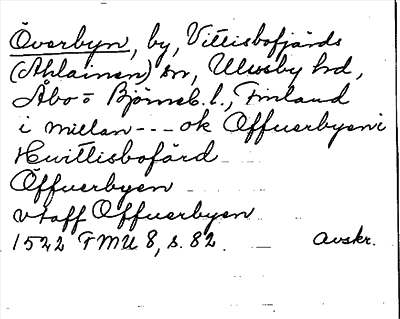 Överbyn, by, Vittisbofjärds
(Ahlainen) sn, Ulvsby hd,
Åbo= Björneb. l., Finland
i millan --- ok Offuerbyen i
Huittisbofärd
Öffuerbyen
vtaff Offuerbyen
1522 FMU 8, s. 82. Avskr.